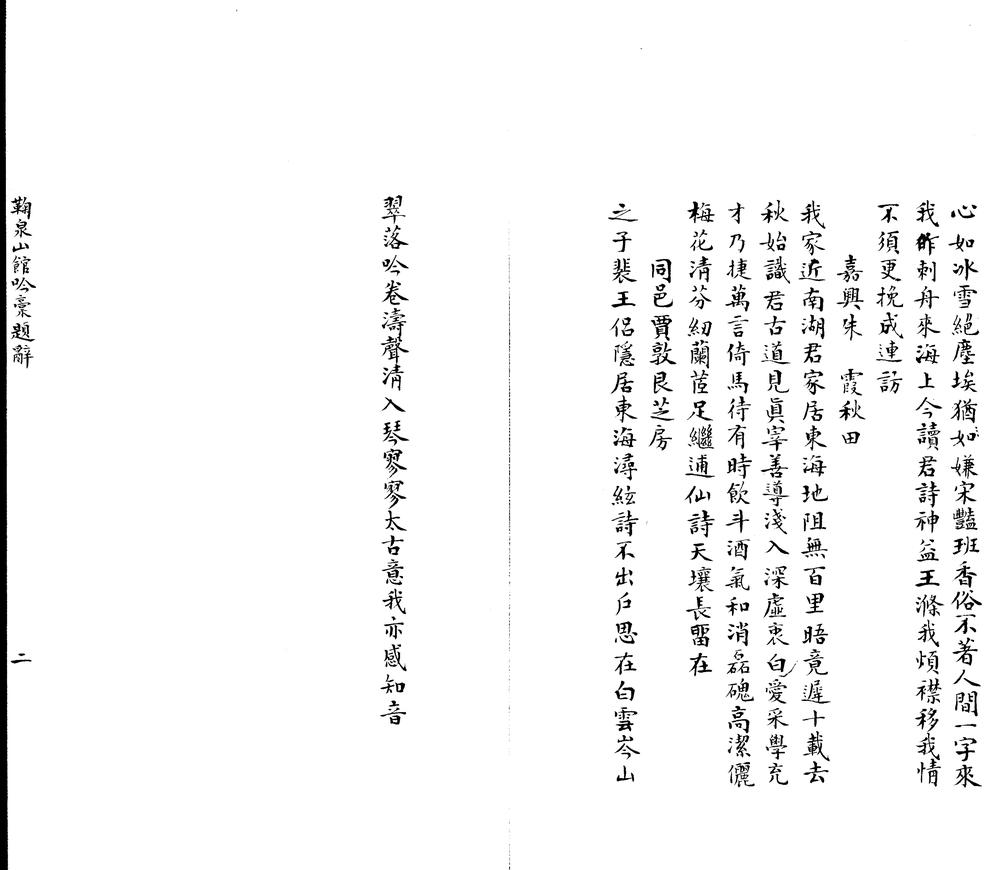 心如冰雪絕塵埃猶如嫌宋豔班香俗不著人間一字來
我昨刺舟來海上今讀君詩神益王滌我煩襟移我情
不須更挽成連訪
嘉興朱 霞秋田
我家近南湖君家居東海地阻無百里晤竟遲十載去
秋始識君古道見眞宰善導淺入深虛衷白愛采學充
才乃捷萬言倚馬待有時飲斗酒氣和消磊磈高潔儷
梅花清芬紉蘭茝足繼逋仙詩天壤長畱在
同邑賈敦艮芝房
之子裴王侶隱居東海潯絃詩不出戶思在白雲岑山
翠落吟卷濤聲清入琴寥寥太古意我亦感知音
鞠泉山館吟稾題辭
二